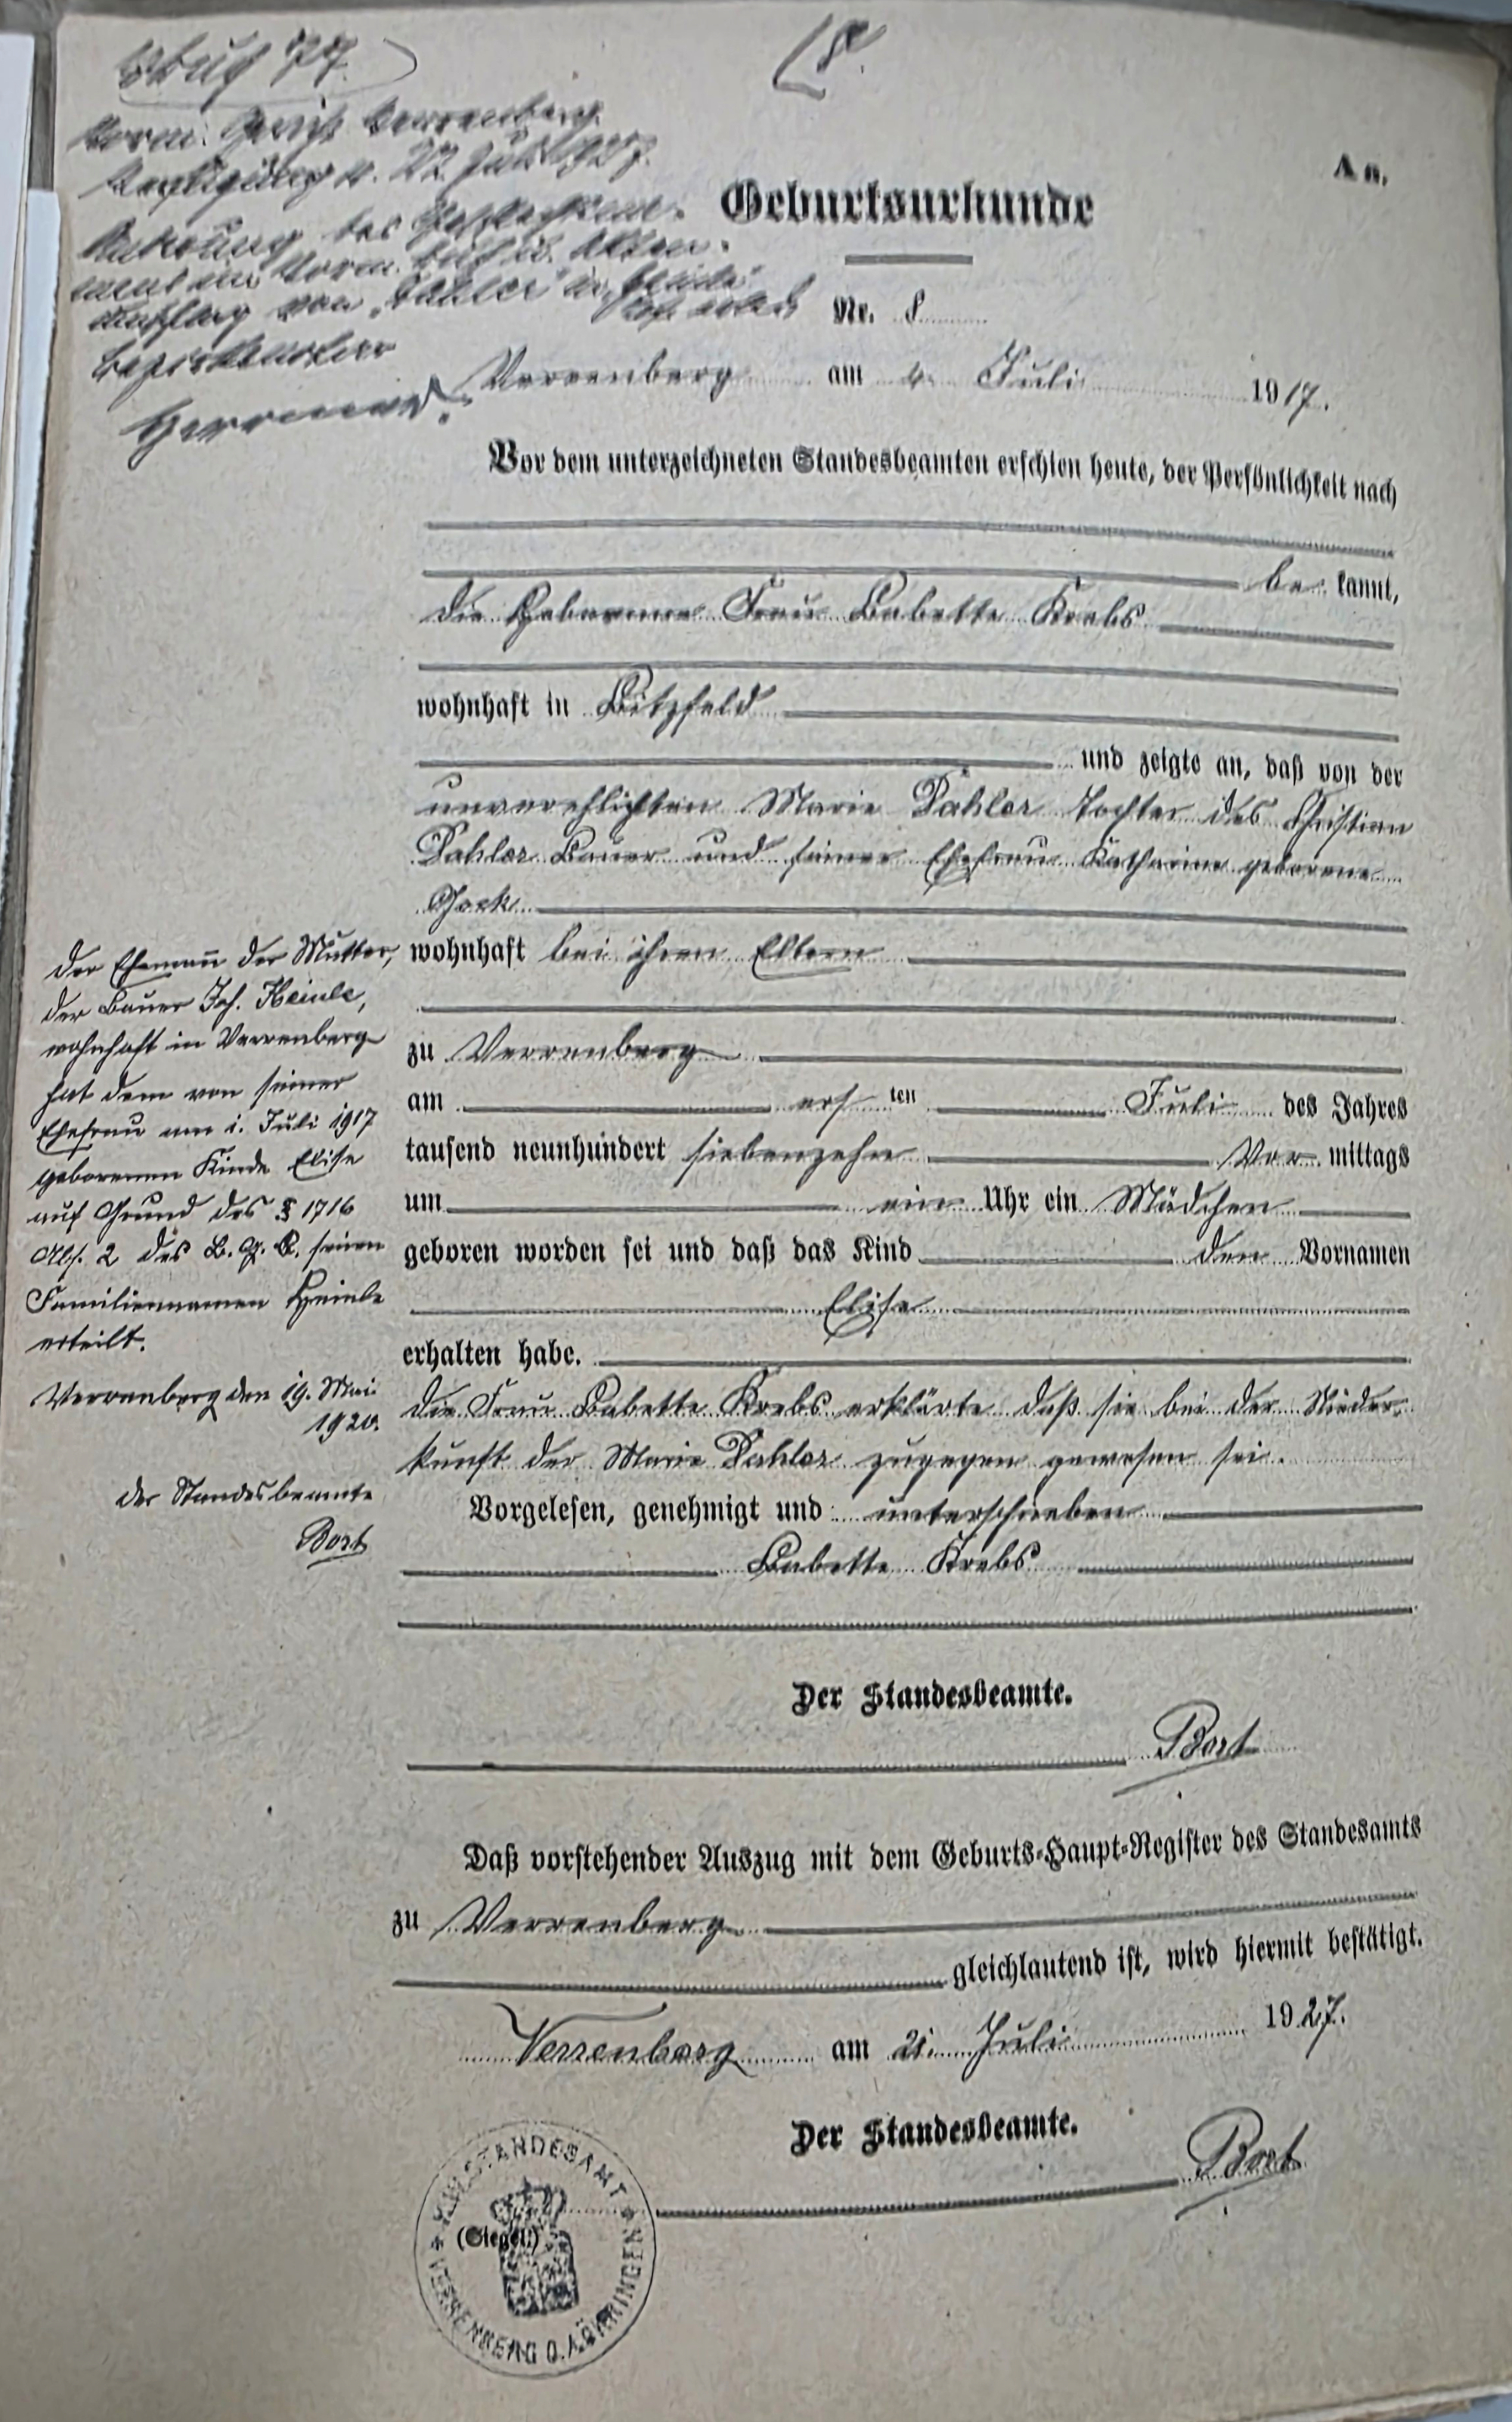 [8.
A n.
Geburtsurkunde
Nr. 8
Verrenberg am 4. Juli 1917.
Vor dem unterzeichneten Standesbeamten erschien heute, der Persönlichkeit nach
be kannt,
die Hebamme Frau Babette Krebs
wohnhaft in Bitzfeld
und zeigte an, daß von der
unverehlichten Marie Dahler Tochter des Christian
Dahler Bauer und seiner Ehefrau Katharine geborene
wohnhaft bei ihren Eltern
zu Verrenberg
am ers ten Juli des Jahres
tausend neunhundert siebenzehn Vor mittags
um ein Uhr ein Mädchen
geboren worden sei und daß das Kind den Vornamen
Elise
erhalten habe.
die Frau Babette Krebs erklärte daß sie bei der Nieder-
kunft der Marie Dahler zugegen gewesen sei.
Vorgelesen, genehmigt und unterschrieben
Babette Krebs
Der Standesbeamte.
Bort
der Ehemann der Mutter,
der Bauer Joh. Heinle,
wohnhaft in Verrenberg
hat dem von seiner
Ehefrau am 1. Juli 1917
geborenen Kinde Elise
auf Grund des § 1716
Abs. 2 des B. G. B. seinen
Familiennamen Heinle
erteilt.
Verrenberg den 19. Mai
1920.
der Standesbeamte
Bort
Daß vorstehender Auszug mit dem Geburts-Haupt-Register des Standesamts
zu Verrenberg
gleichlautend ist, wird hiermit bestätigt.
Verrenberg am 21. Juli 1927.
Der Standesbeamte.
Bort
(Siegel.)
STANDESAMT
VERRENBERG O.A. ÖHRINGEN